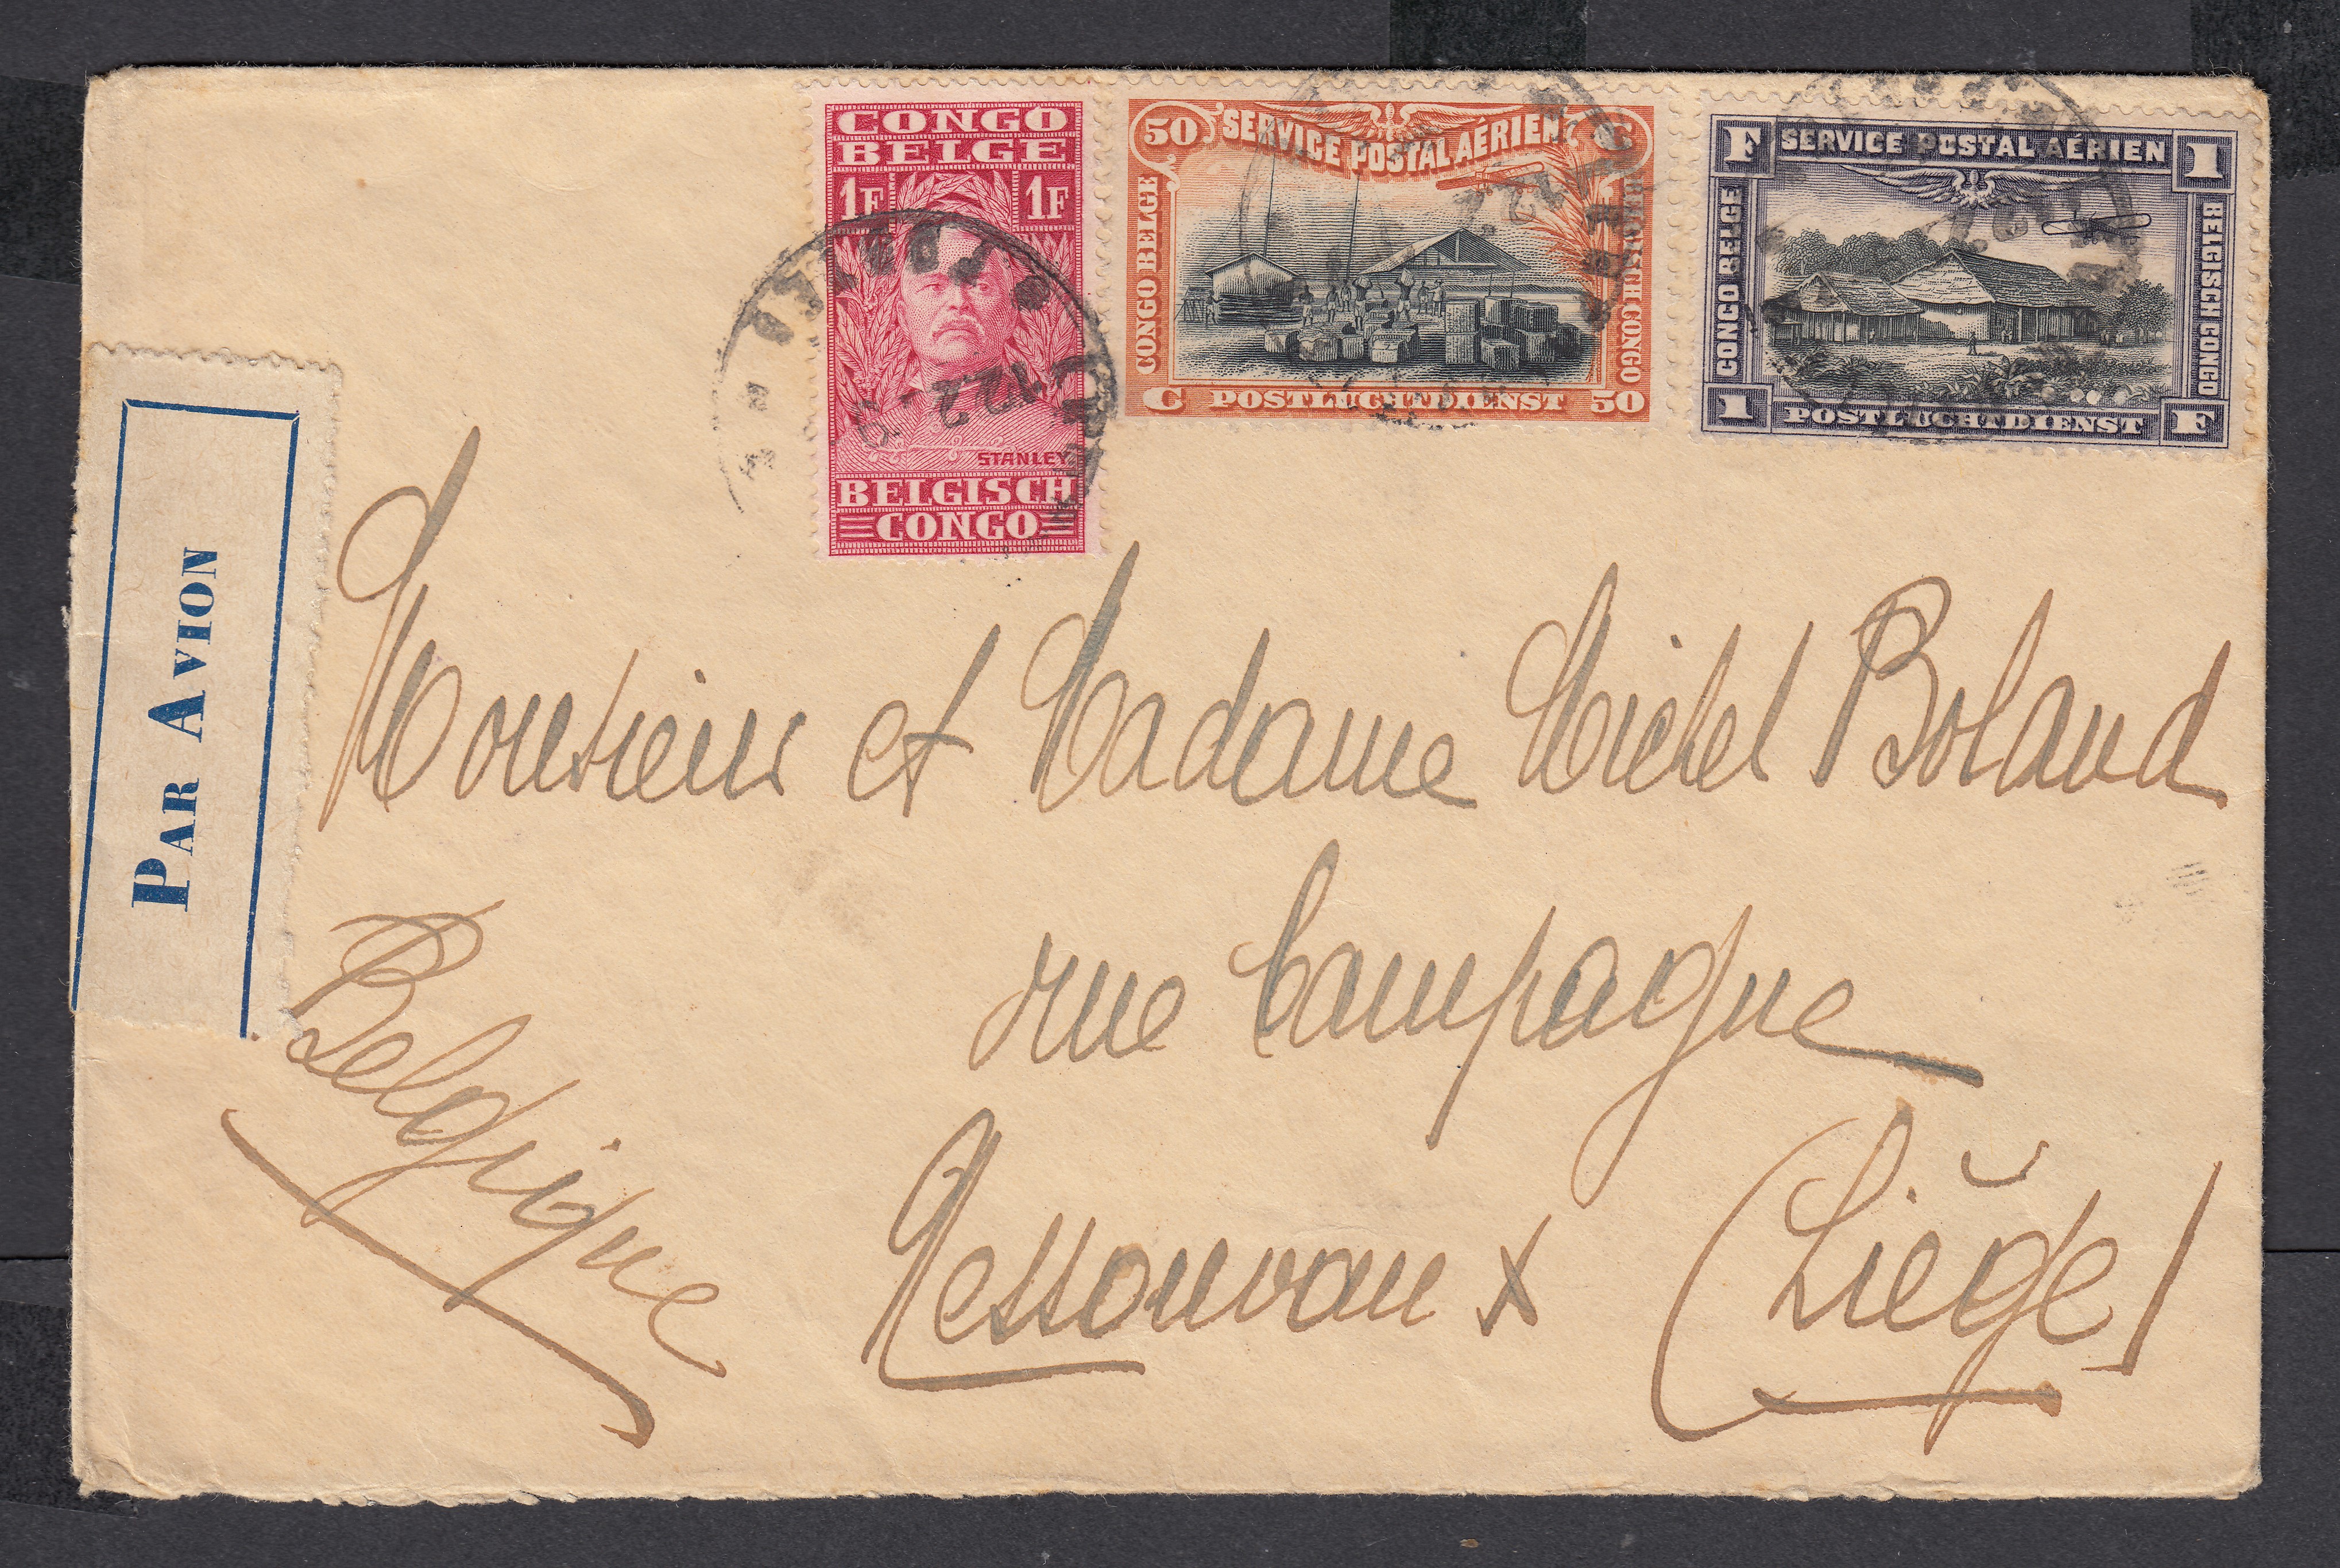 CONGO
BELGE
1F 1F
STANLEY
BELGISCH
CONGO
50 SERVICE POSTAL AÉRIEN C
CONGO BELGE
BELGISCH CONGO
C POSTLUCHTDIENST 50
F SERVICE POSTAL AÉRIEN 1
CONGO BELGE
BELGISCH CONGO
1 POSTLUCHTDIENST F
PAR AVION
Monsieur et Madame Michel Boland
rue Campagne
Nessonvaux (Liège)
Belgique